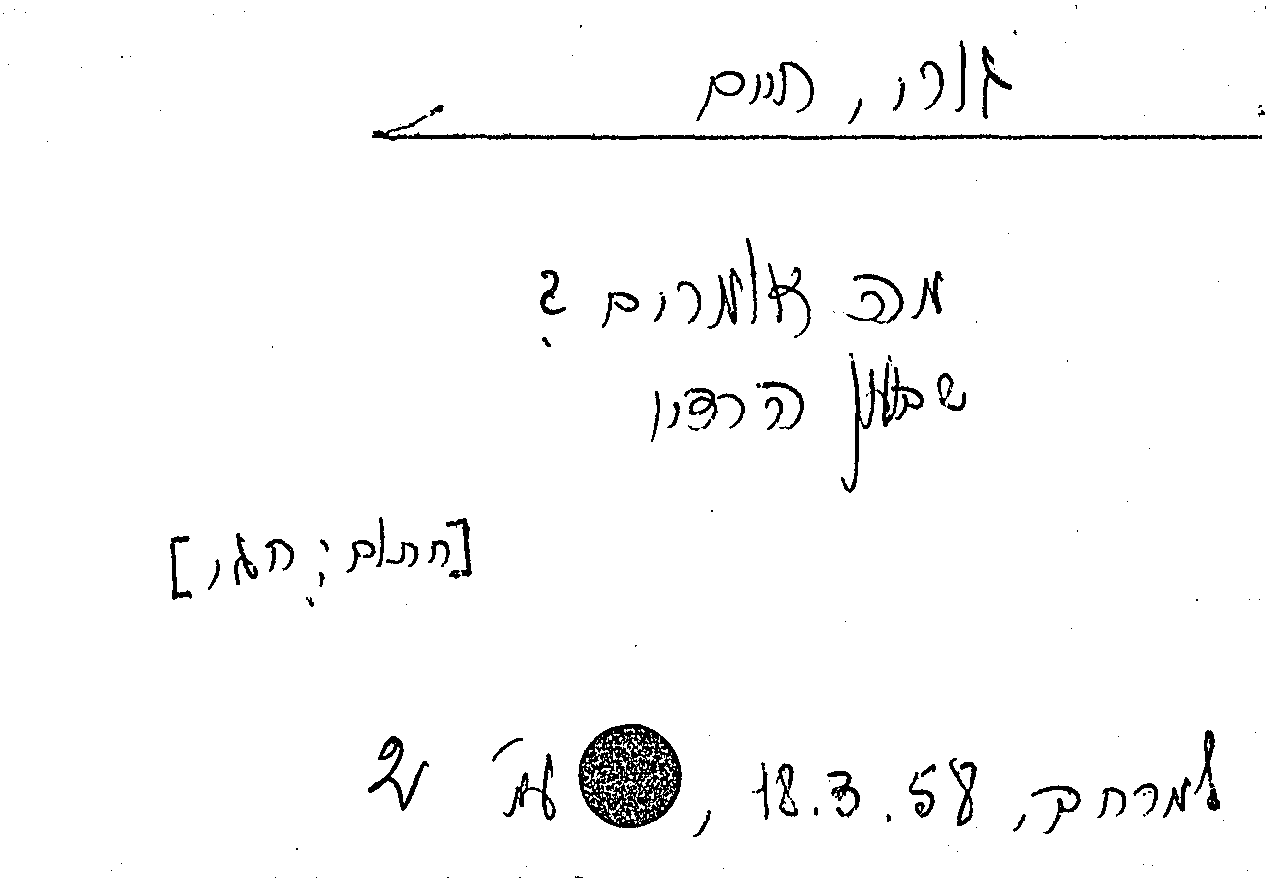 גורי, חיים
מה אומרים?
שבועון הרדיו
[חתום: חגי]
למרחב, 18.3.58, עמ' 2